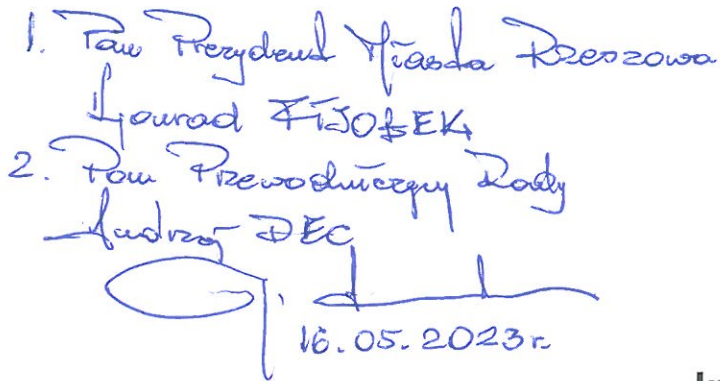 1. Pan Prezydent Miasta Rzeszowa
Konrad FIJOŁEK
2. Pan Przewodniczący Rady
Andrzej DEC
16.05.2023r.